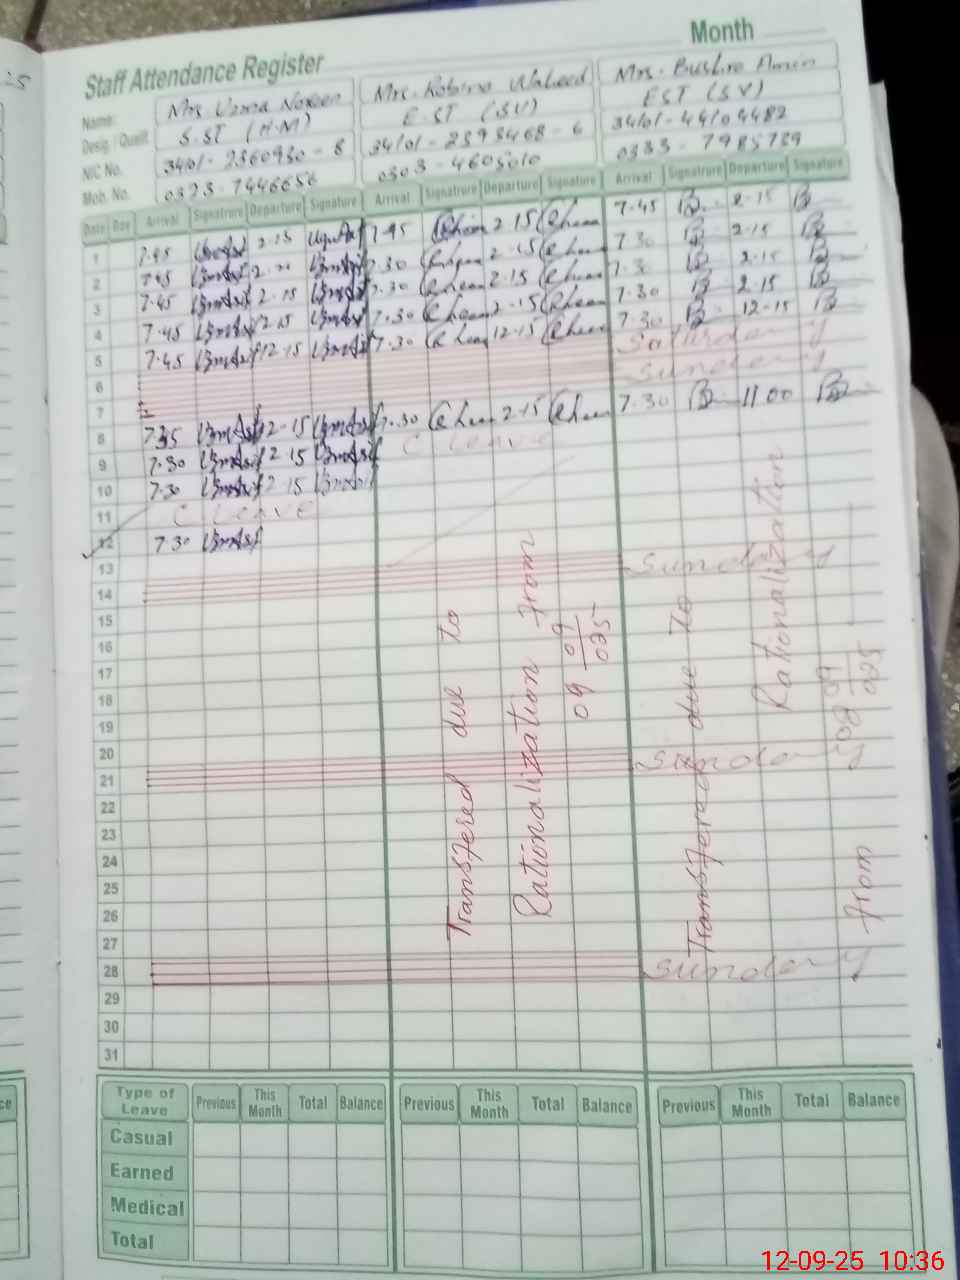 Month
Staff Attendance Register
Name: Mrs Uzma Noreen Mrs. Robina Waheed Mrs. Bushra Amin
Desig. / Qualif. S.ST (H.M) E.ST (SV) EST (SV)
NIC No. 34101-2360930-8 34101-2393468-6 34101-44104482
Mob. No. 0323-7446656 0303-4605010 0333-7985789
Date Day Arrival Signatrure Departure Signature Arrival Signatrure Departure Signature Arrival Signatrure Departure Signature
1 7.45 2-15 7.45 2.15 7.45 2-15
2 7.45 7.30 2-15 7.30 2.15
3 7.45 2.15 7.30 2.15 7.30 2.15
4 7.45 2.15 7.30 2-15 7.30 2.15
5 7.45 12.15 7.30 12.15 7.30 12-15
6 Saturday
7 Sunday
8 2-15 7.30 2.15 7.30 11.00
9 7.30 2.15 C leave
10 7.30 2.15
11 C Leave
12 7.30
13
14 Sunday
15
16
17
18
19
20
21 Sunday
22
23
24
25
26
27
28 Sunday
29
30
31
Transfered due to
Rationalization from
09 09
025
Transfered due to
Rationalization
from 09
025
Type of Leave Previous This Month Total Balance Previous This Month Total Balance Previous This Month Total Balance
Casual
Earned
Medical
Total
12-09-25 10:36